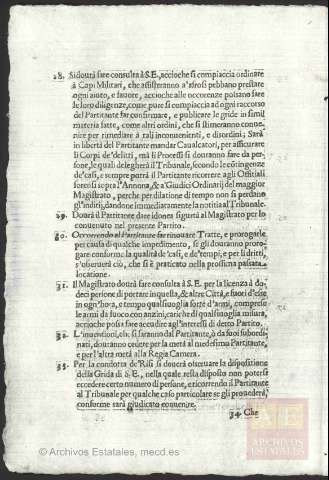 28. Si dourà fare consulta à S.E. accioche si compiaccia ordinare
à Capi Militari, che assisteranno a'
prestare
ogni aiuto, e fauore, accioche alle occorenze possano fare
le loro diligenze, come pure si compiaccia ad ogni raccorso
del Partitante far confirmare, e publicare le gride in simil
materia fatte, come altri ordini, che si stimeranno conue-
nire per rimediare à tali inconuenienti, e disordini; Sarà
in libertà del Partitante mandar Caualcatori, per assicurare
li Corpi de'delitti, mà li Processi si douranno fare da per-
sone, le quali delegherà il Tribunale, secondo le contingenze
de'casi, e sempre potrà il Partitante ricorrere agli Offitiali
foresi sopra l'Annona, & a'Giudici Ordinarij del maggior
Magistrato, perche per dilatione di tempo non si perdano
gl'inditij, dandone immediatamente la notitia al Tribunale.
29. Dourà il Partitante dare idonea sigurtà al Magistrato per lo
contenuto nel presente Partito.
30. Occorrendo al Partitante far rinouare Tratte, e prorogarle
per causa di qualche impedimento, se gli douranno proro-
gare conforme la qualità de'casi, e de'tempi, e per li dritti,
s'osseruerà ciò, che si è praticato nella prossima passata
locatione.
31. Il Magistrato dourà fare consulta à S.E. per la licenza à do-
deci persone di portare in quella, & altre Città, e fuori d'esse
in ogn'hora, e tempo qualsiuoglia sorte d'armi, comprese
le armi da fuoco con anzini, cariche di qualsiuoglia misura,
accioche possa fare accudire agl'interessi di detto Partito.
32. L'inuentioni, ch. si faranno dal Partitante, ò da suoi subordi-
nati, douranno cedere per la metà al medesimo Partitante,
e per l'altra metà alla Regia Camera.
33. Per la condotta de'Risi si douerà osseruare la dispositione
della Grida di S.E., nella quale resta disposto non potersi
eccedere certo numero di persone, e ricorrendo il Partitante
al Tribunale per qualche caso particolare se gli prouederà,
conforme sarà giudicato conuenire.
34. Che
ARCHIVOS
ESTATALES
© Archivos Estatales, mecd.es